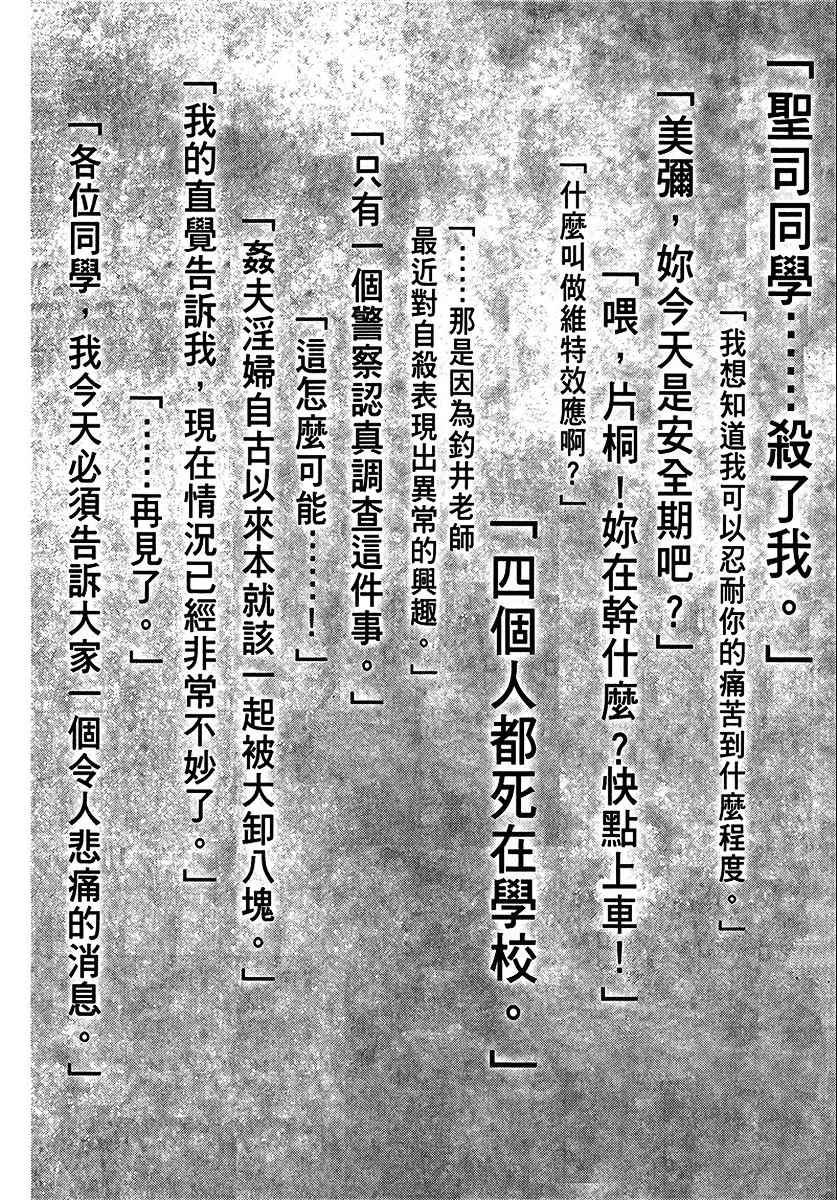 「聖司同學……殺了我。」
「我想知道我可以忍耐你的痛苦到什麼程度。」
「美彌，妳今天是安全期吧？」
「喂，片桐！妳在幹什麼？快點上車！」
「什麼叫做維特效應啊？」
「四個人都死在學校。」
「……那是因為釣井老師
最近對自殺表現出異常的興趣。」
「只有一個警察認真調查這件事。」
「這怎麼可能……！」
「姦夫淫婦自古以來本就該一起被大卸八塊。」
「我的直覺告訴我，現在情況已經非常不妙了。」
「……再見了。」
「各位同學，我今天必須告訴大家一個令人悲痛的消息。」